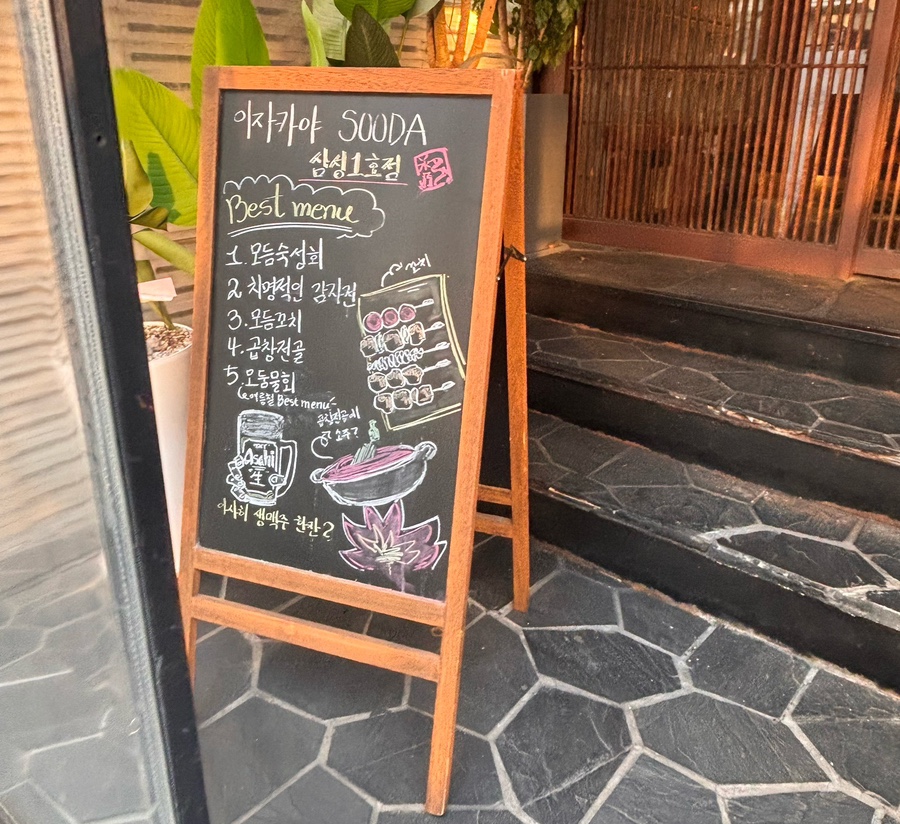 이자카야 SOODA
삼성1호점
Best menu
1. 모듬숙성회
2. 치명적인 감자전
꼬치
3. 모듬꼬치
4. 곱창전골
5. 모둠물회
여름철 Best menu
곱창전골에
소주?
Asahi
生
아사히 생맥주 한잔?